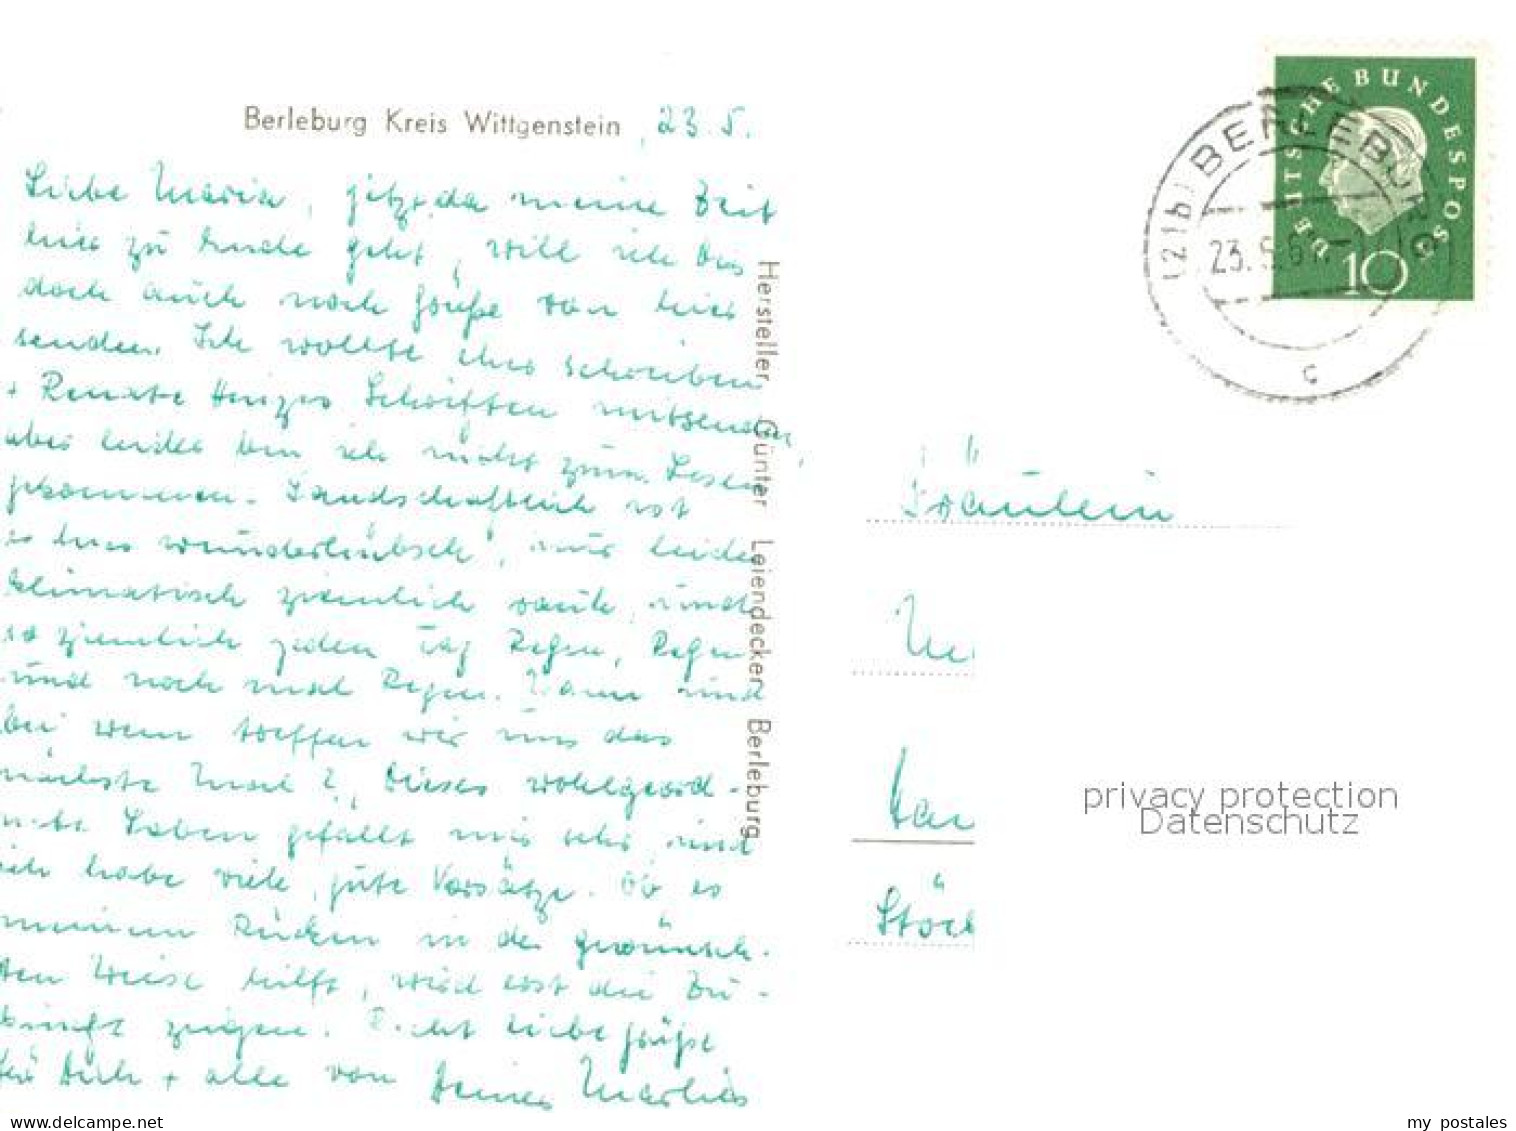 Berleburg Kreis Wittgenstein, 23.5.
Liebe Maria, jetzt, da meine Zeit
hier zu Ende geht, will ich Dir
doch auch noch Grüße von hier
senden. Ich wollte eher schreiben
+ Renate Schriften mitsenden,
aber leider bin ich nicht zum Lesen
gekommen. Landschaftlich ist
es hier wunderhübsch, nur leider
klimatisch ziemlich rauh, und
so ziemlich jeden Tag Regen, Regen
und noch mal Regen. Wann und
bei wem treffen wir uns das
nächste Mal? Dieses wohlgeord-
nete Leben gefällt mir sehr und
ich habe viele, gute Vorsätze. Ob es
meinem Rücken in der gewünsch-
ten Weise hilft, wird erst die Zu-
kunft zeigen. Recht liebe Grüße
für Dich + alle von Deiner Marlies
Hersteller Günter Leiendecker Berleburg
DEUTSCHE BUNDESPOST
10
(21b) BERLEBURG
23.5.6
c
Fräulein
Stöck
privacy protection
Datenschutz
www.delcampe.net
my_postales